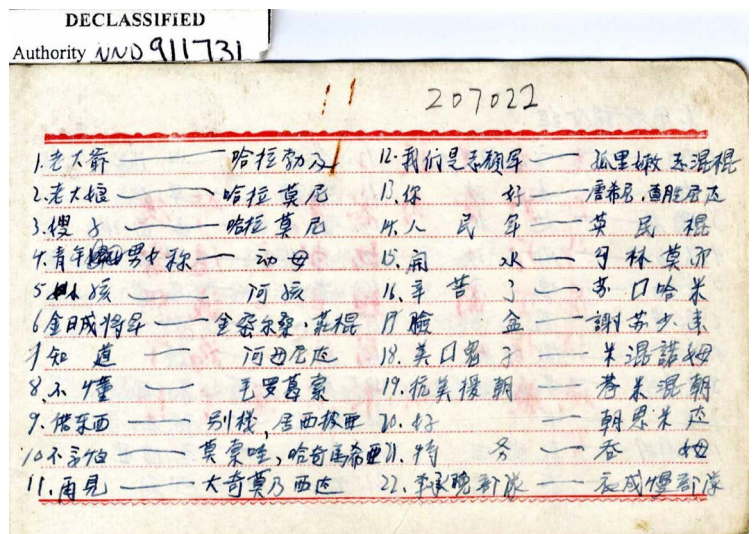 DECLASSIFIED
Authority NND 911731
207022
1.老大爺 — 哈拉勃及
2.老大娘 — 哈拉莫尼
3.嫂子 — 哈拉莫尼
4.青年男女称 — 动母
5.孩 — 阿孩
6.金日成將軍 — 金寄尔桑·莊棍
7.知道 — 阿西尼达
8.不懂 — 毛罗莫索
9.借东西 —
10.不 — 莫索哇,哈奇馬希亚
11.再見 — 大奇莫乃西达
12.我们是志願軍 — 孤里嫩 志混棍
13.你好
14.人民軍 — 英民棍
15.開水 — 林莫尔
16.辛苦了 — 苏口哈米
17.臉盆 — 謝苏少東
18.美口鬼子 — 米混諾姆
19.抗美援朝 — 米混朝
20.好 — 朝思米达
21.特务 — 吞姆
22.李承晚部隊 — 部隊